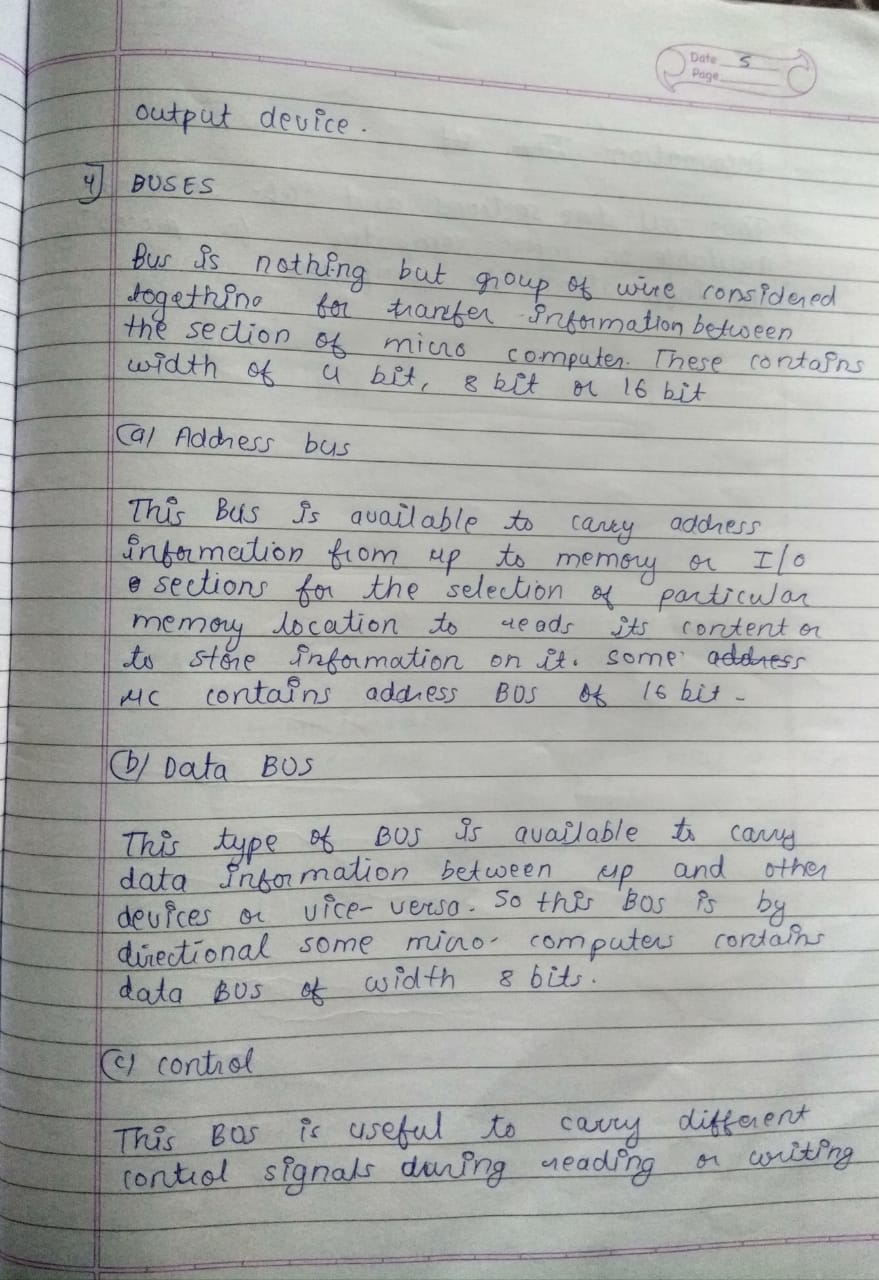 Date 5
Page
output device.
4] BUSES
Bus is nothing but group of wire considered
togethino for tranfer information between
the section of micro computer. These contains
width of 4 bit, 8 bit or 16 bit
(a) Address bus
This Bus is available to carry address
information from up to memory or I/o
sections for the selection of particular
memory location to reads its content or
to store information on it. some address
μc contains address BUS of 16 bit -
(b) Data BUS
This type of BUS is available to carry
data information between μp and other
devices or vice-versa. So this BUS is by
directional some micro- computers contains
data BUS of width 8 bits.
(c) control
This BUS is useful to carry different
control signals during reading or writing